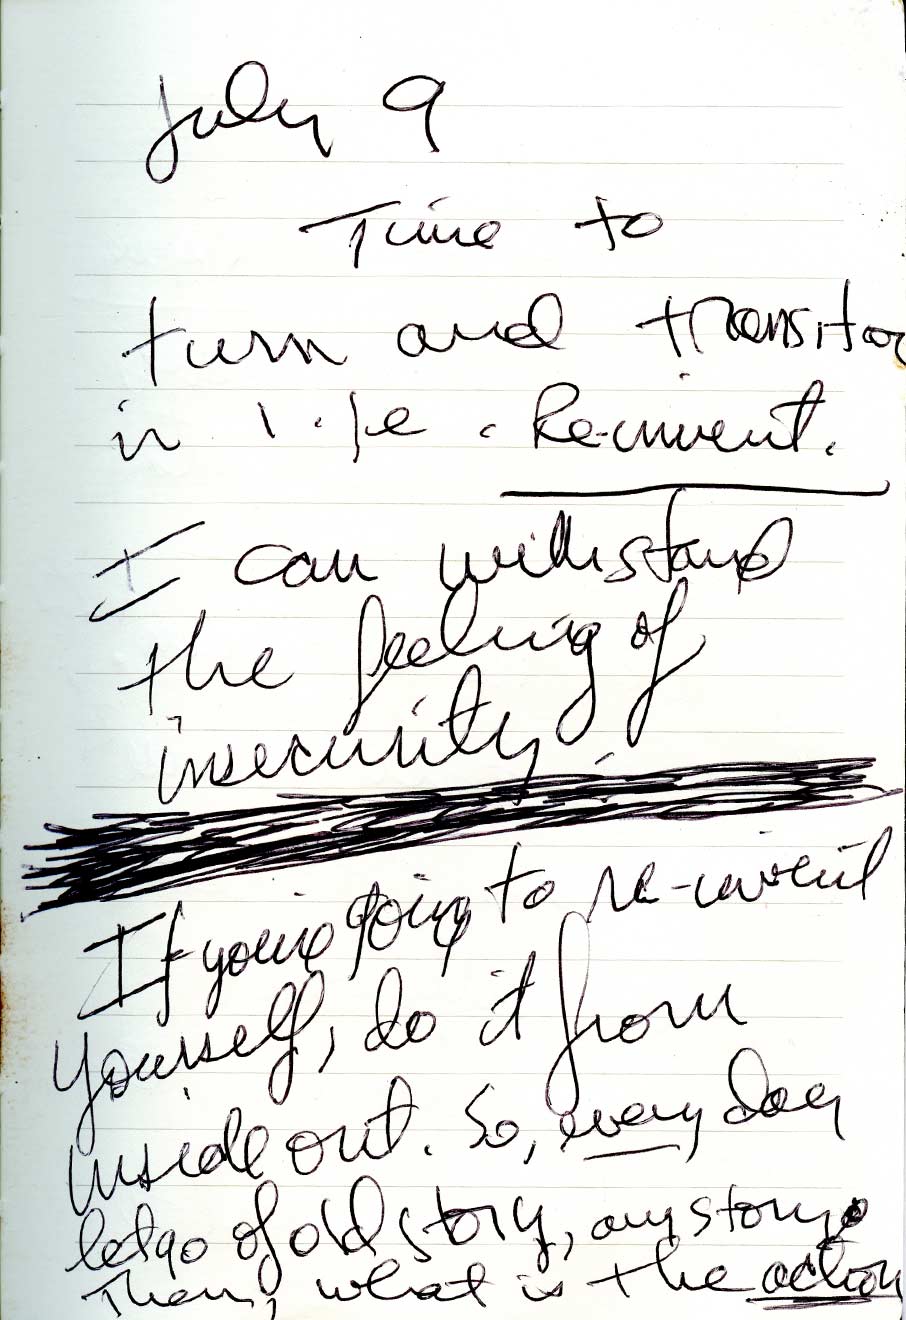 July 9
Time to
turn and transitor
in life. Re-invent.
I can withstand
the feeling of
insecurity.
If you're going to re-invent
yourself, do it from
inside out. So, every day
let go of old story, any story.
Then, what is the action